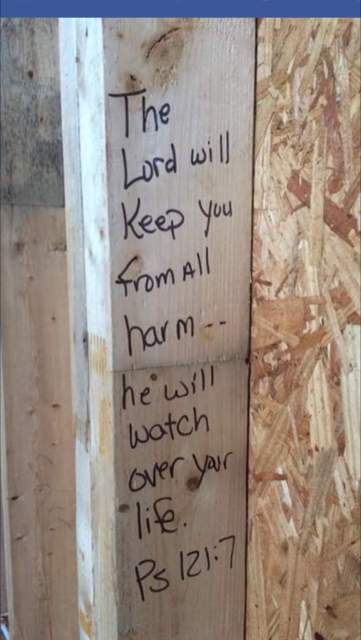 The
Lord will
Keep you
from All
harm--
he will
watch
over your
life.
Ps 121:7